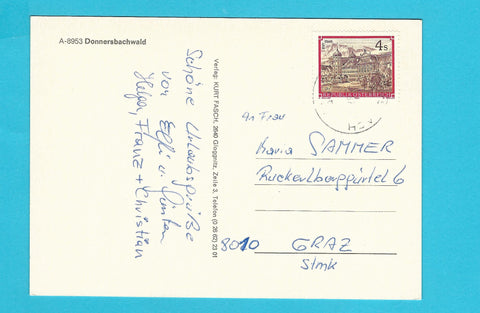 A-8953 Donnersbachwald
Schöne Urlaubsgrüße
von Elfi u. Günter
Helga, Franz + Christian
Verlag: KURT FASCH, 2640 Gloggnitz, Zeile 3, Telefon (0 26 62) 23 01
4 S
REPUBLIK ÖSTERREICH
An Frau
Maria SAMMER
Ruckerlberggürtel 6
8010 GRAZ
Stmk